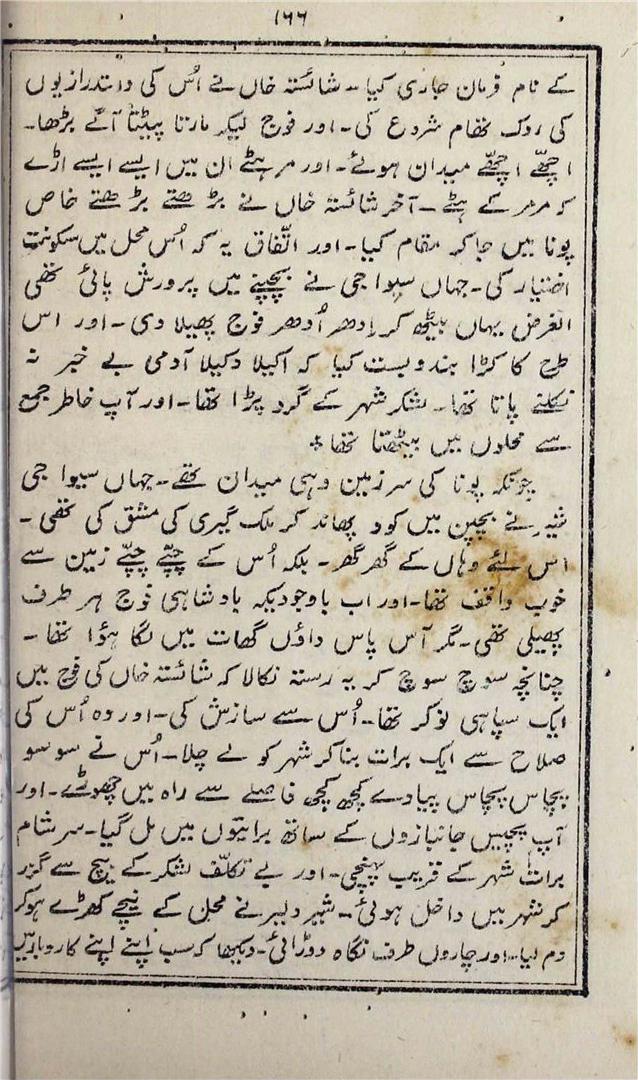 ۱۶۶
کے نام فرمان جاری کیا۔ شائستہ خاں نے اُس کی دستدرازیوں
کی روک تھام شروع کی۔ اور فوج لیکر مارتا پیٹتا آگے بڑھا۔
اچھّے اچھّے میدان ہوئے۔ اور مرہٹے ان میں ایسے ایسے اڑے
کہ مرمر کے ہٹے۔ آخر شائستہ خاں نے بڑھتے بڑھتے خاص
پونا میں جا کر مقام کیا۔ اور اتّفاق یہ کہ اُس محل میں سکونت
اختیار کی۔ جہاں سیوا جی نے بچپنے میں پرورش پائی تھی
الغرض یہاں بیٹھ کر اِدھر اُدھر فوج پھیلا دی۔ اور اس
طرح کا کڑا بندوبست کیا کہ اکیلا دکیلا آدمی بے خبر نہ
نکلنے پاتا تھا۔ لشکر شہر کے گرد پڑا تھا۔ اور آپ خاطر جمع
سے محلوں میں بیٹھتا تھا٭
چونکہ پونا کی سرزمین وہی میدان تھے۔ جہاں سیوا جی
شیر نے بچپن میں کود پھاند کر ملک گیری کی مشق کی تھی۔
اس لئے وہاں کے گھر گھر۔ بلکہ اُس کے چپّے چپّے زمین سے
خوب واقف تھا۔ اور اب باوجودیکہ بادشاہی فوج ہر طرف
پھیلی تھی۔ مگر آس پاس داؤں گھات میں لگا ہؤا تھا۔
چنانچہ سوچ سوچ کر یہ رستہ نکالا کہ شائستہ خاں کی فوج میں
ایک سپاہی نوکر تھا۔ اُس سے سازش کی۔ اور وہ اُس کی
صلاح سے ایک برات بنا کر شہر کو لے چلا۔ اُس نے سو سو
پچاس پچاس پیادے کچھ کچھ فاصلے سے راہ میں چھوڑے۔ اور
آپ پچیس جانبازوں کے ساتھ براتیوں میں مل گیا۔ سر شام
برات شہر کے قریب پہنچی۔ اور بے تکلّف لشکر کے بیچ سے گزر
کر شہر میں داخل ہوئی۔ شیر دلیر نے محل کے نیچے کھڑے ہو کر
دم لیا۔ اور چاروں طرف نگاہ دوڑائی۔ دیکھا کہ سب اپنے اپنے کاروبار میں